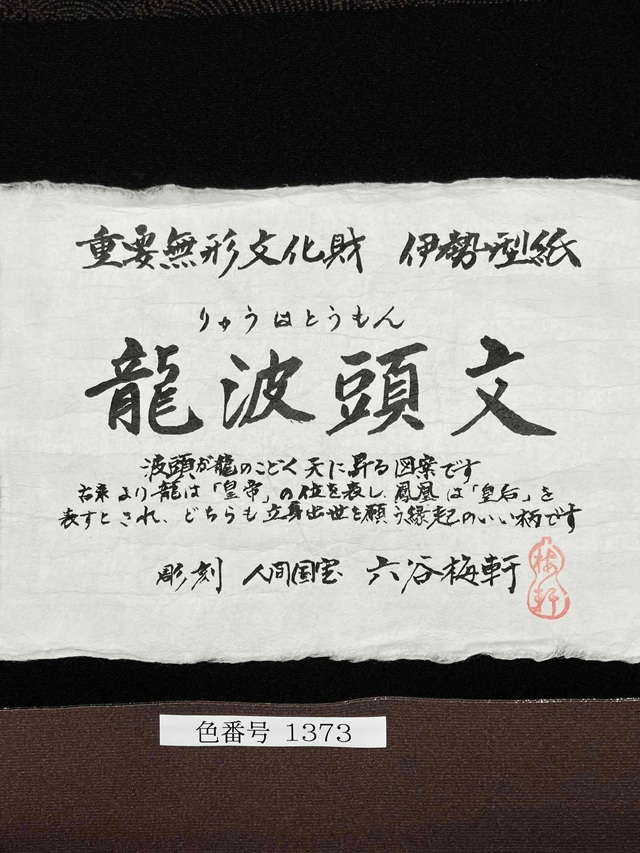 重要無形文化財　伊勢型紙
りゅうはとうもん
龍波頭文
波頭が龍のごとく天に昇る図案です
古来より龍は「皇帝」の位を表し、鳳凰は「皇后」を
表すとされ、どちらも立身出世を願う縁起のいい柄です
彫刻　人間国宝　六谷梅軒
梅軒
色番号 1373